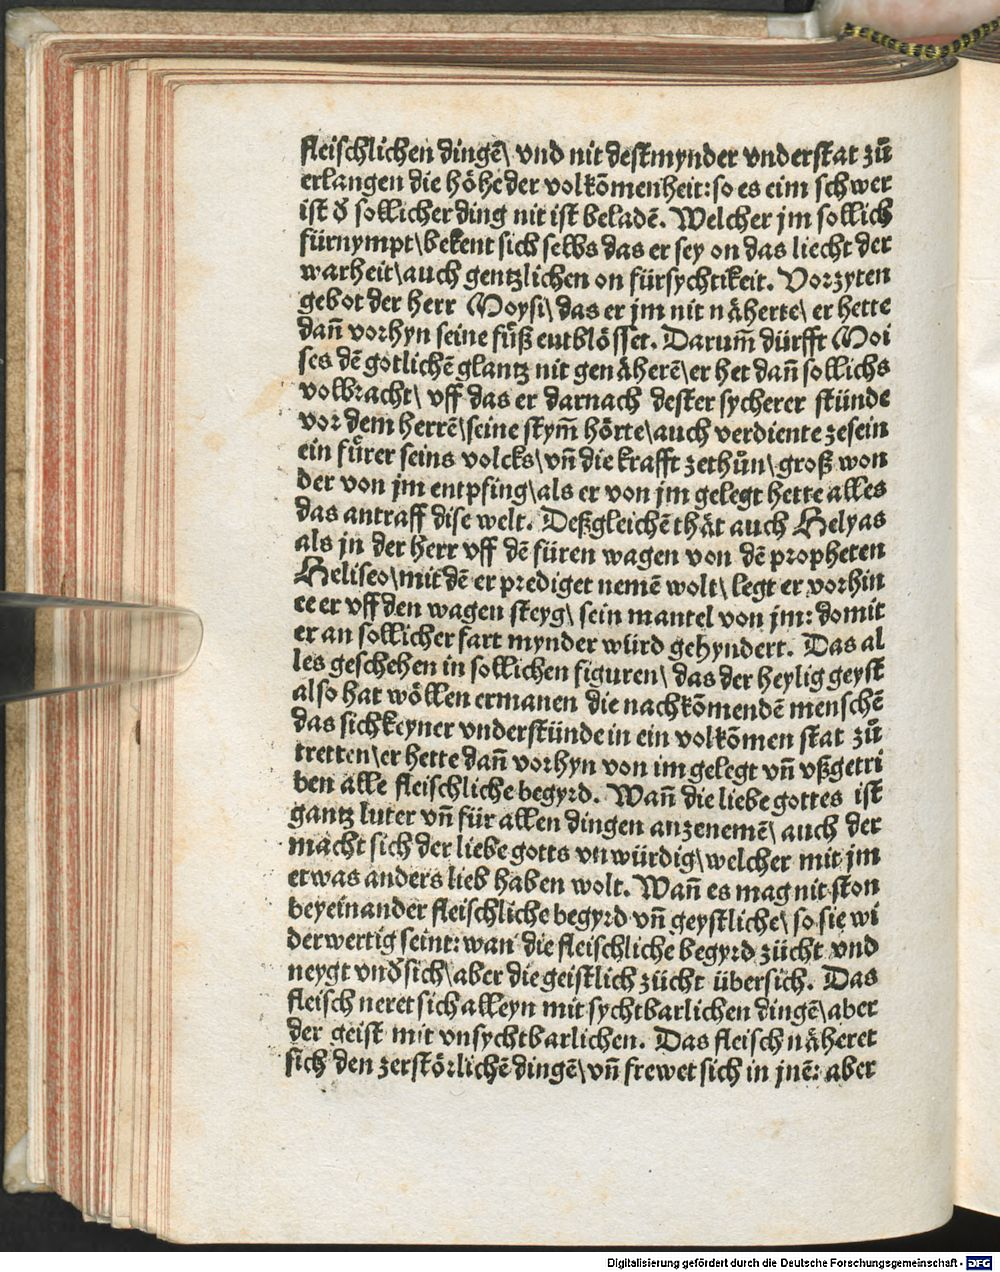 fleischlichen dingē\ vnd nit destmynder vnderstat zů
erlangen die höhe der volkōmenheit: so es eim schwer
ist d̕ sollicher ding nit ist beladē. Welcher jm sollich
fürnympt\ bekent sich selbs das er sey on das liecht der
warheit\ auch gentzlichen on fürsychtikeit. Vorzyten
gebot der herr Moysi\ das er jm nit näherte\ er hette
dañ vorhyn seine fůß entblösset. Darum̄ dürfft Moi
ses dē gotlichē glantz nit genäherē\ er het dañ sollichs
volbracht\ vff das er darnach dester sycherer stünde
vor dem herrē\ seine stym̄ hörte\ auch verdiente zesein
ein fůrer seins volcks\ vñ die krafft zethůn\ groß won
der von jm entpfing\ als er von jm gelegt hette alles
das antraff dise welt. Deßgleichē thät auch Helyas
als jn der herr vff dē füren wagen von dē propheten
Heliseo\ mit dē er prediget nemē wolt\ legt er vorhin
ee er vff den wagen steyg\ sein mantel von jm: domit
er an sollicher fart mynder würd gehyndert. Das al
les geschehen in sollichen figuren\ das der heylig geyst
also hat wöllen ermanen die nachkōmendē menschē
das sich keyner vnderstünde in ein volkōmen stat zů
tretten\ er hette dañ vorhyn von im gelegt vñ vßgetri
ben alle fleischliche begyrd. Wañ die liebe gottes ist
gantz luter vñ für allen dingen anzenemē\ auch der
macht sich der liebe gotts vnwürdig\ welcher mit jm
etwas anders lieb haben wolt. Wañ es mag nit ston
beyeinander fleischliche begyrd vñ geystliche\ so sie wi
derwertig seint: wan die fleischliche begyrd zücht vnd
neygt vnd̕sich\ aber die geistlich zücht übersich. Das
fleisch neret sich alleyn mit sychtbarlichen dingē\ aber
der geist mit vnsychtbarlichen. Das fleisch näheret
sich den zerstörlichē dingē\ vñ frewet sich in jnē: aber
Digitalisierung gefördert durch die Deutsche Forschungsgemeinschaft - DFG